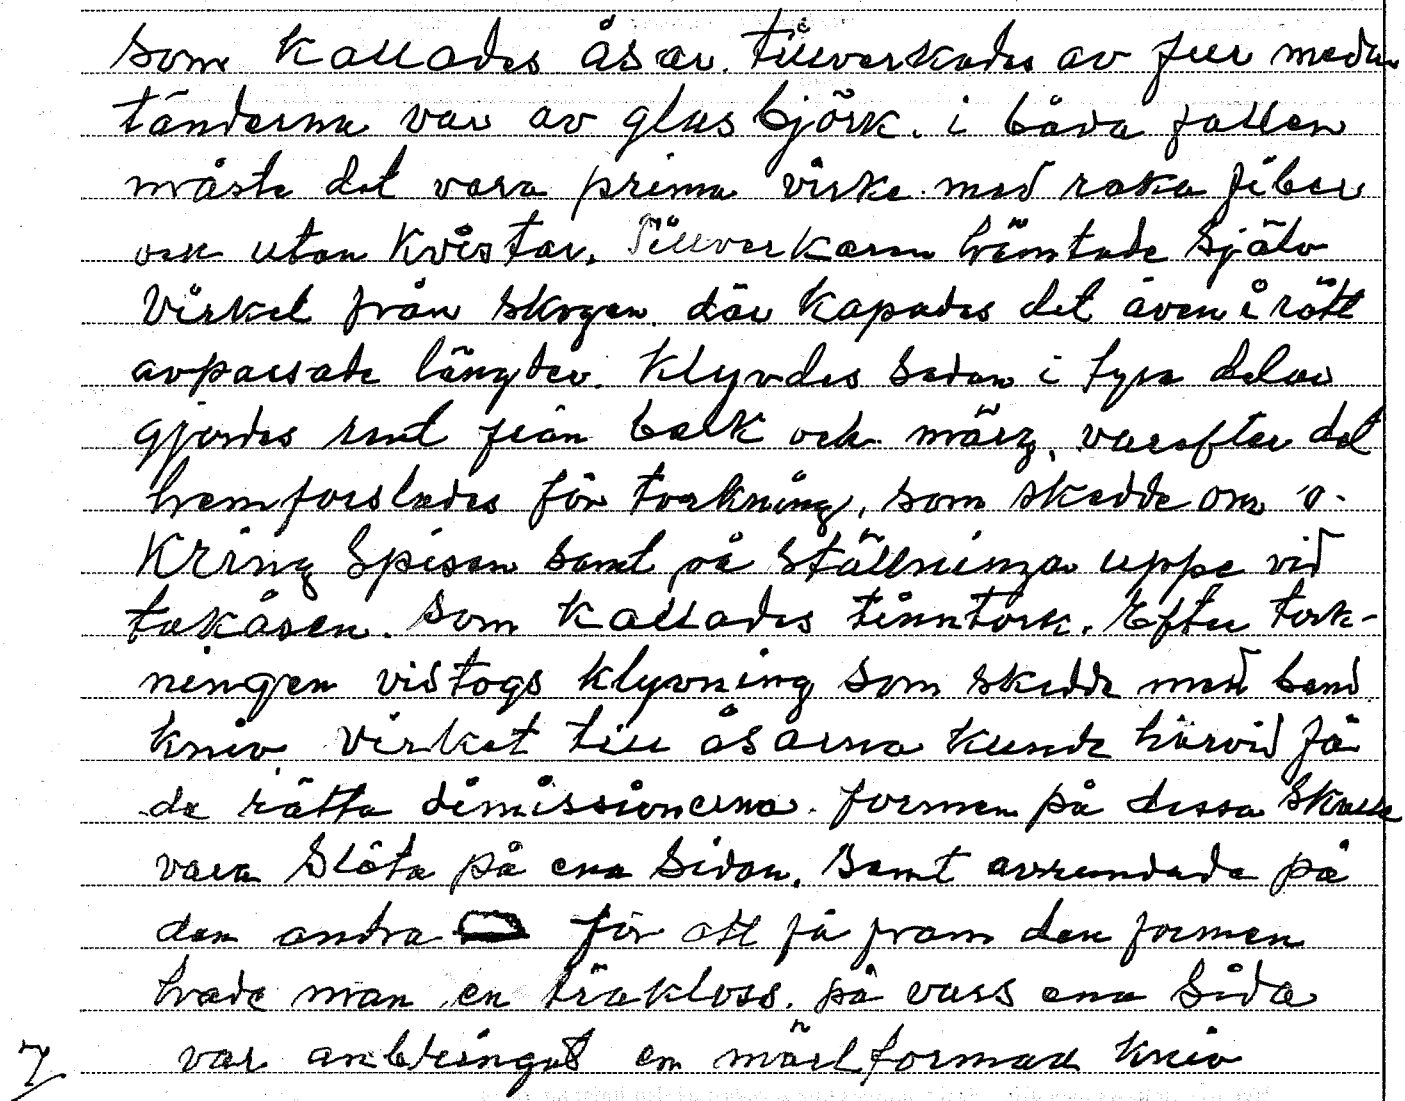 som kallades åsar. tillverkades av fur medan
tänderna var av glasbjörk. i båda fallen
måste det vara prima virke med raka fiber
och utan kvistar. Tillverkaren hämtade själv
Virket från skogen. där kapades det även i rätt
avpassade längder. Klyvdes sedan i fyra delar
gjordes rent från bark och märg. varefter det
hemforslades för torkning. som skedde om o-
Kring Spisen samt på ställningar uppe vid
takåsen. Som kallades tinntork. Efter tork-
ningen vidtogs klyvning som skedde med band
kniv. Virket till åsarna kunde härvid få
de rätta dimissionerna. formen på dessa skulle
vara Släta på ena Sidan. Samt avrundade på
den andra för att få fram den formen
hade man en träkloss. på vars ena Sida
var anbringat en formad kniv
7